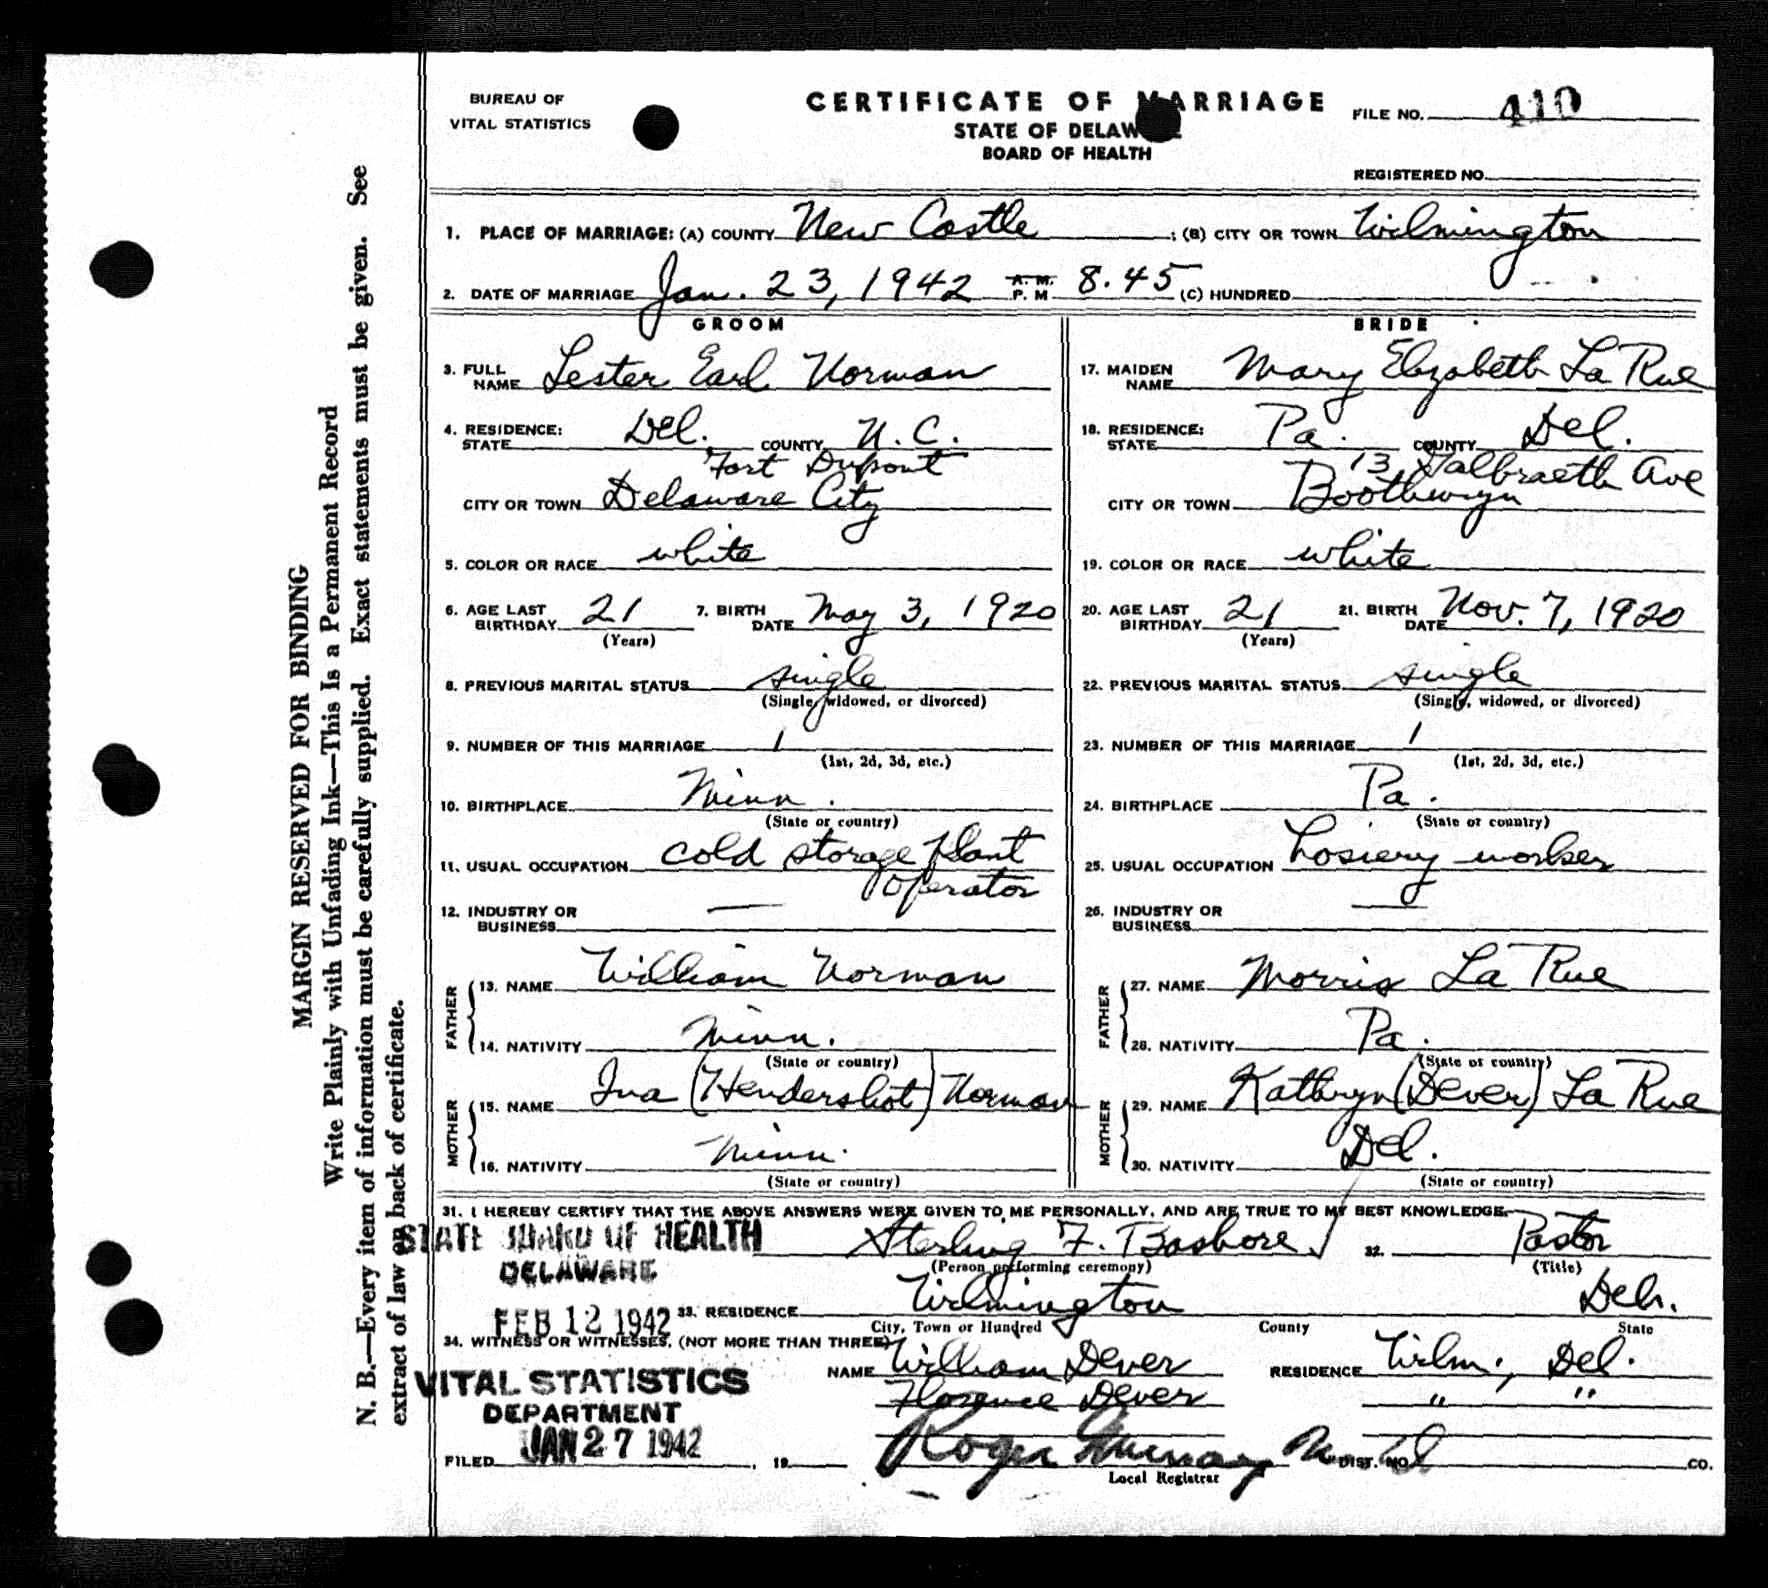 BUREAU OF
VITAL STATISTICS
CERTIFICATE OF MARRIAGE
STATE OF DELAWARE
BOARD OF HEALTH
FILE NO. 410
REGISTERED NO.
1. PLACE OF MARRIAGE: (A) COUNTY New Castle ; (B) CITY OR TOWN Wilmington
2. DATE OF MARRIAGE Jan. 23, 1942 A. M. P. M 8.45 (C) HUNDRED
GROOM
3. FULL NAME Lester Earl Norman
4. RESIDENCE: STATE Del. COUNTY N. C.
Fort Dupont
CITY OR TOWN Delaware City
5. COLOR OR RACE white
6. AGE LAST BIRTHDAY 21 (Years) 7. BIRTH DATE May 3, 1920
8. PREVIOUS MARITAL STATUS single
(Single, widowed, or divorced)
9. NUMBER OF THIS MARRIAGE 1
(1st, 2d, 3d, etc.)
10. BIRTHPLACE Minn.
(State or country)
11. USUAL OCCUPATION cold storage plant
operator
12. INDUSTRY OR BUSINESS —
FATHER
13. NAME William Norman
14. NATIVITY Minn.
(State or country)
MOTHER
15. NAME Ina (Hendershot) Norman
16. NATIVITY Minn.
(State or country)
BRIDE
17. MAIDEN NAME Mary Elizabeth La Rue
18. RESIDENCE: STATE Pa. COUNTY Del.
13 Galbraeth Ave
CITY OR TOWN Boothwyn
19. COLOR OR RACE white
20. AGE LAST BIRTHDAY 21 (Years) 21. BIRTH DATE Nov. 7, 1920
22. PREVIOUS MARITAL STATUS single
(Single, widowed, or divorced)
23. NUMBER OF THIS MARRIAGE 1
(1st, 2d, 3d, etc.)
24. BIRTHPLACE Pa.
(State or country)
25. USUAL OCCUPATION hosiery worker
26. INDUSTRY OR BUSINESS —
FATHER
27. NAME Morris La Rue
28. NATIVITY Pa.
(State or country)
MOTHER
29. NAME Kathryn (Dever) La Rue
30. NATIVITY Del.
(State or country)
31. I HEREBY CERTIFY THAT THE ABOVE ANSWERS WERE GIVEN TO ME PERSONALLY, AND ARE TRUE TO MY BEST KNOWLEDGE.
STATE BOARD OF HEALTH
DELAWARE
FEB 12 1942
Sterling F. Bashore 32. Pastor
(Person performing ceremony) (Title)
33. RESIDENCE Wilmington Del.
City, Town or Hundred County State
34. WITNESS OR WITNESSES, (NOT MORE THAN THREE)
NAME William Dever RESIDENCE Wilm., Del.
Florence Dever " "
VITAL STATISTICS
DEPARTMENT
JAN 27 1942
FILED , 19 Roger Murray M.D. DIST. NO. CO.
Local Registrar
MARGIN RESERVED FOR BINDING
Write Plainly with Unfading Ink—This Is a Permanent Record
N. B.—Every item of information must be carefully supplied. Exact statements must be given. See
extract of law on back of certificate.